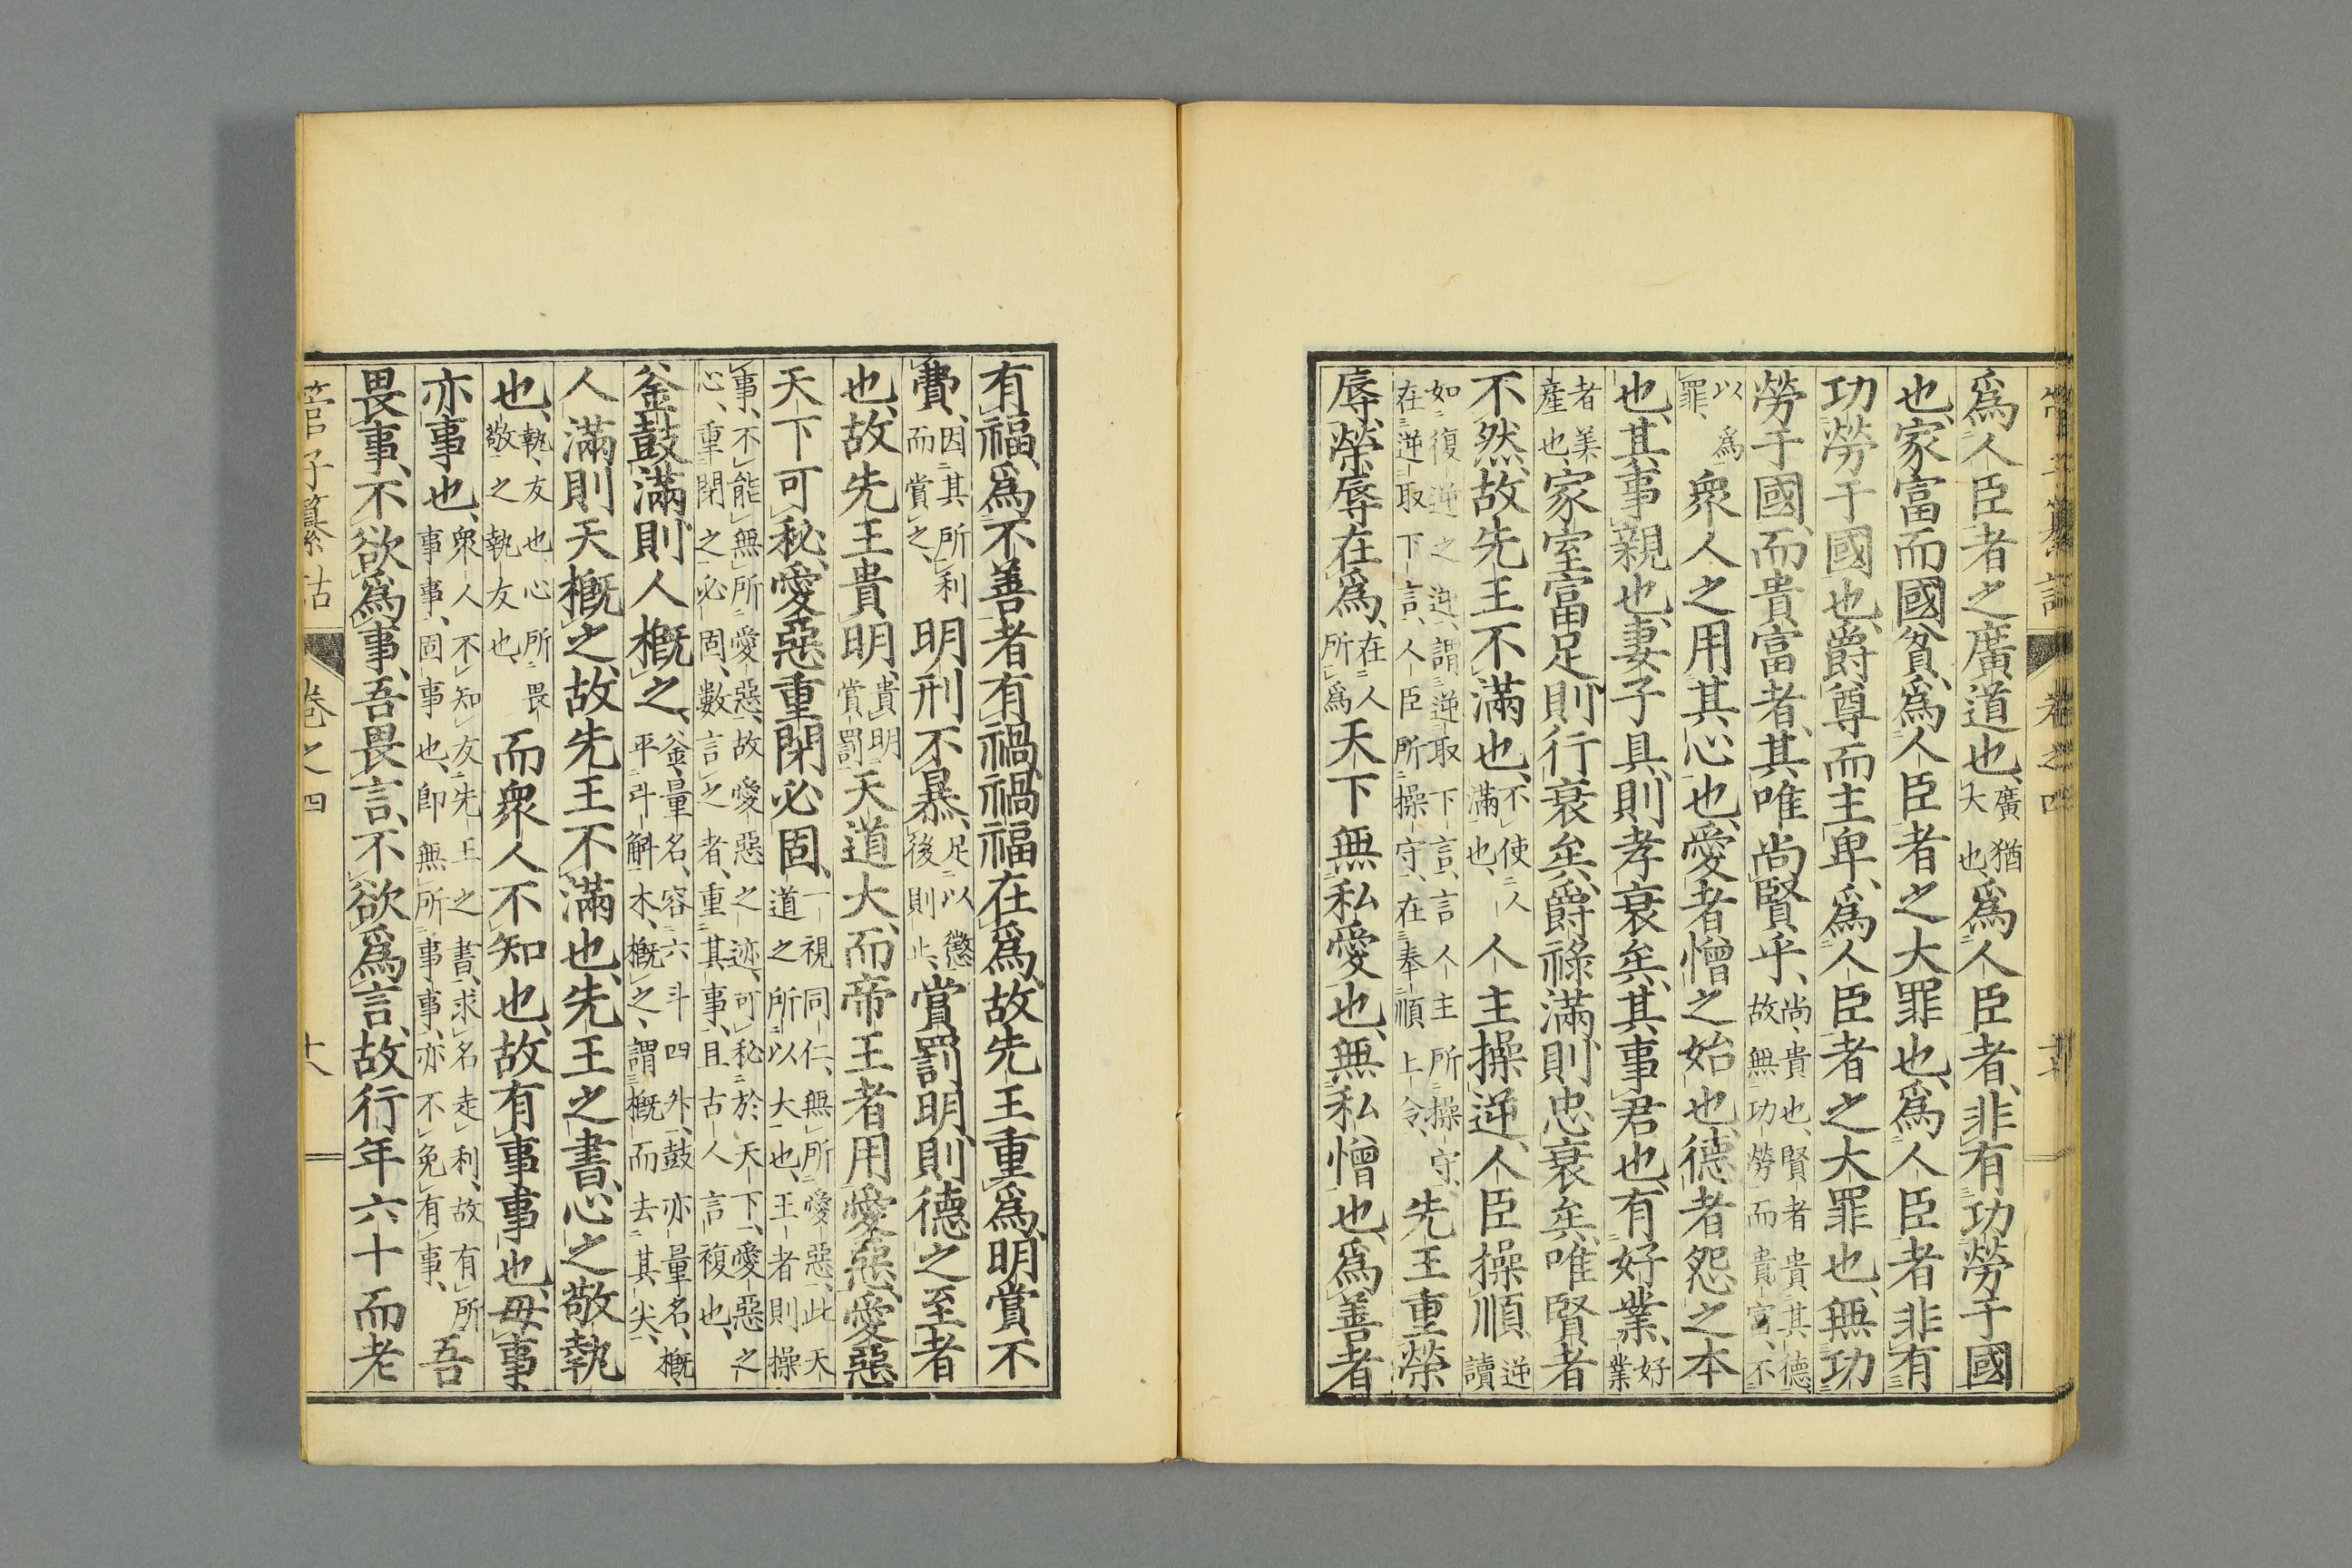 管子纂詁 卷之四
爲人臣者之廣道也、廣猶大也、爲人臣者、非有功勞于國
也、家富而國貧、爲人臣者之大罪也、爲人臣者、非有
功勞于國也、爵尊而主卑、爲人臣者之大罪也、無功
勞于國、而貴富者、其唯尚賢乎、尚、貴也、賢者貴其德、故無功勞而貴富、不
以爲罪、衆人之用其心也、愛者憎之始也、德者怨之本
也、其事親也、妻子具、則孝衰矣、其事君也、有好業、好業
者美產也、家室富足、則行衰矣、爵祿滿、則忠衰矣、唯賢者
不然、故先王不滿也、不使人滿也、人主操逆、人臣操順、逆讀
如復逆之逆、謂逆取下言、言人主所操守、在逆取下言、人臣所操守、在奉順上令、先王重榮
辱、榮辱在爲、在人所爲天下無私愛也、無私憎也、爲善者
有福、爲不善者有禍、禍福在爲、故先王重爲、明賞不
費、因其所利而賞之、明刑不暴、足以懲後則止、賞罰明、則德之至者
也、故先王貴明、貴明賞罰天道大、而帝王者用愛惡、愛惡
天下可秘、愛惡重閉必固、一視同仁、無所愛惡、此天道之所以大也、王者則操
事、不能無所愛惡、故愛惡之迹、可秘於天下、愛惡之心、重閉之必固、數言之者、重其事、且古人言複也、
釜鼓滿、則人概之、釜、量名、容六斗四升、鼓亦量名、概、平斗斛木、概之、謂概而去其尖、
人滿則天概之、故先王不滿也、先王之書、心之敬執
也、執、友也、心所畏敬之執友也、而衆人不知也、故有事事也、毋事
亦事也、衆人不知友先王之書、求名走利、故有所事事、固事也、卽無所事事、亦不免有事、吾
畏事、不欲爲事、吾畏言、不欲爲言、故行年六十而老
管子纂詁 卷之四 十八